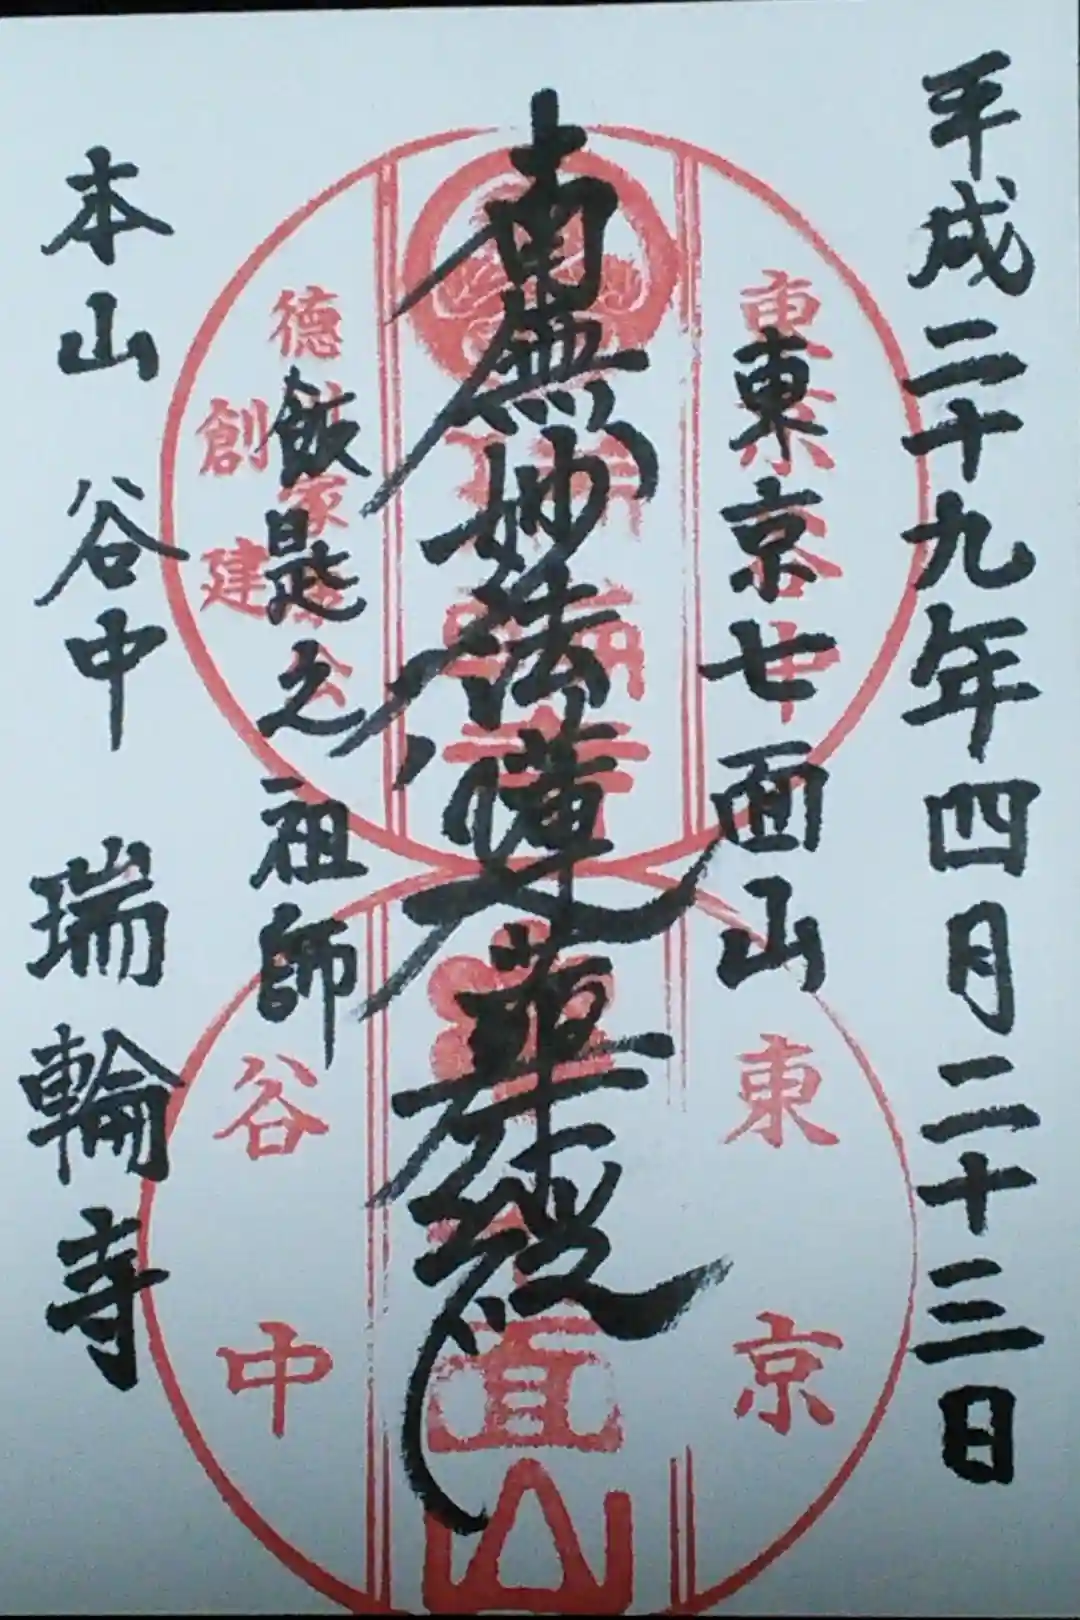 平成二十九年四月二十三日
東京七面山
南無妙法蓮華経
飯匙之祖師
本山 谷中 瑞輪寺
東京谷中
徳川家
創建
東京
谷中